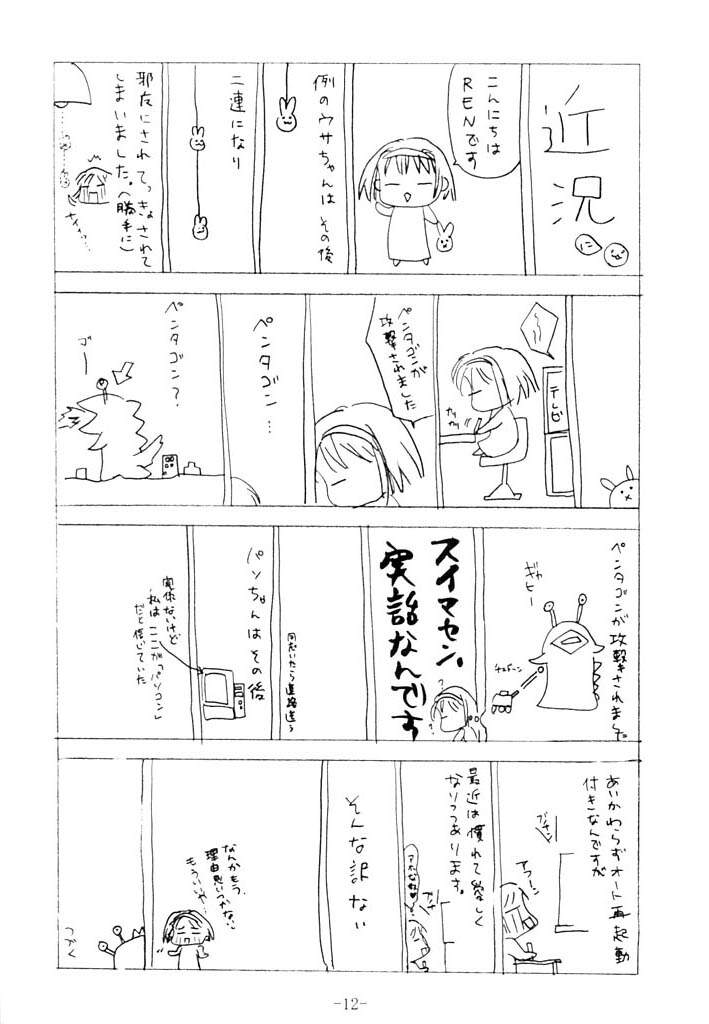 近況
こんにちは
RENです
例のウサちゃんは その後
二連になり
邪魔にされててっきょされて
しまいました。(勝手に)
テレビ
カリカリ
ペンタゴンが
攻撃されました
ペンタゴン…
ペンタゴン?
ゴー
ペンタゴンが攻撃されました
ギャヒー
スイマセン、
実話なんです
パソちゃんは その後
実体ないけど
私は ここが「パソコン」
だと信じていた
あいかわらずオート再起動
付きなんですが
アラーン
最近は慣れて愛しく
なりつつあります。
そんな訳ない
なんかもう、
理由思いつかない
もういいや…
つづく
-12-